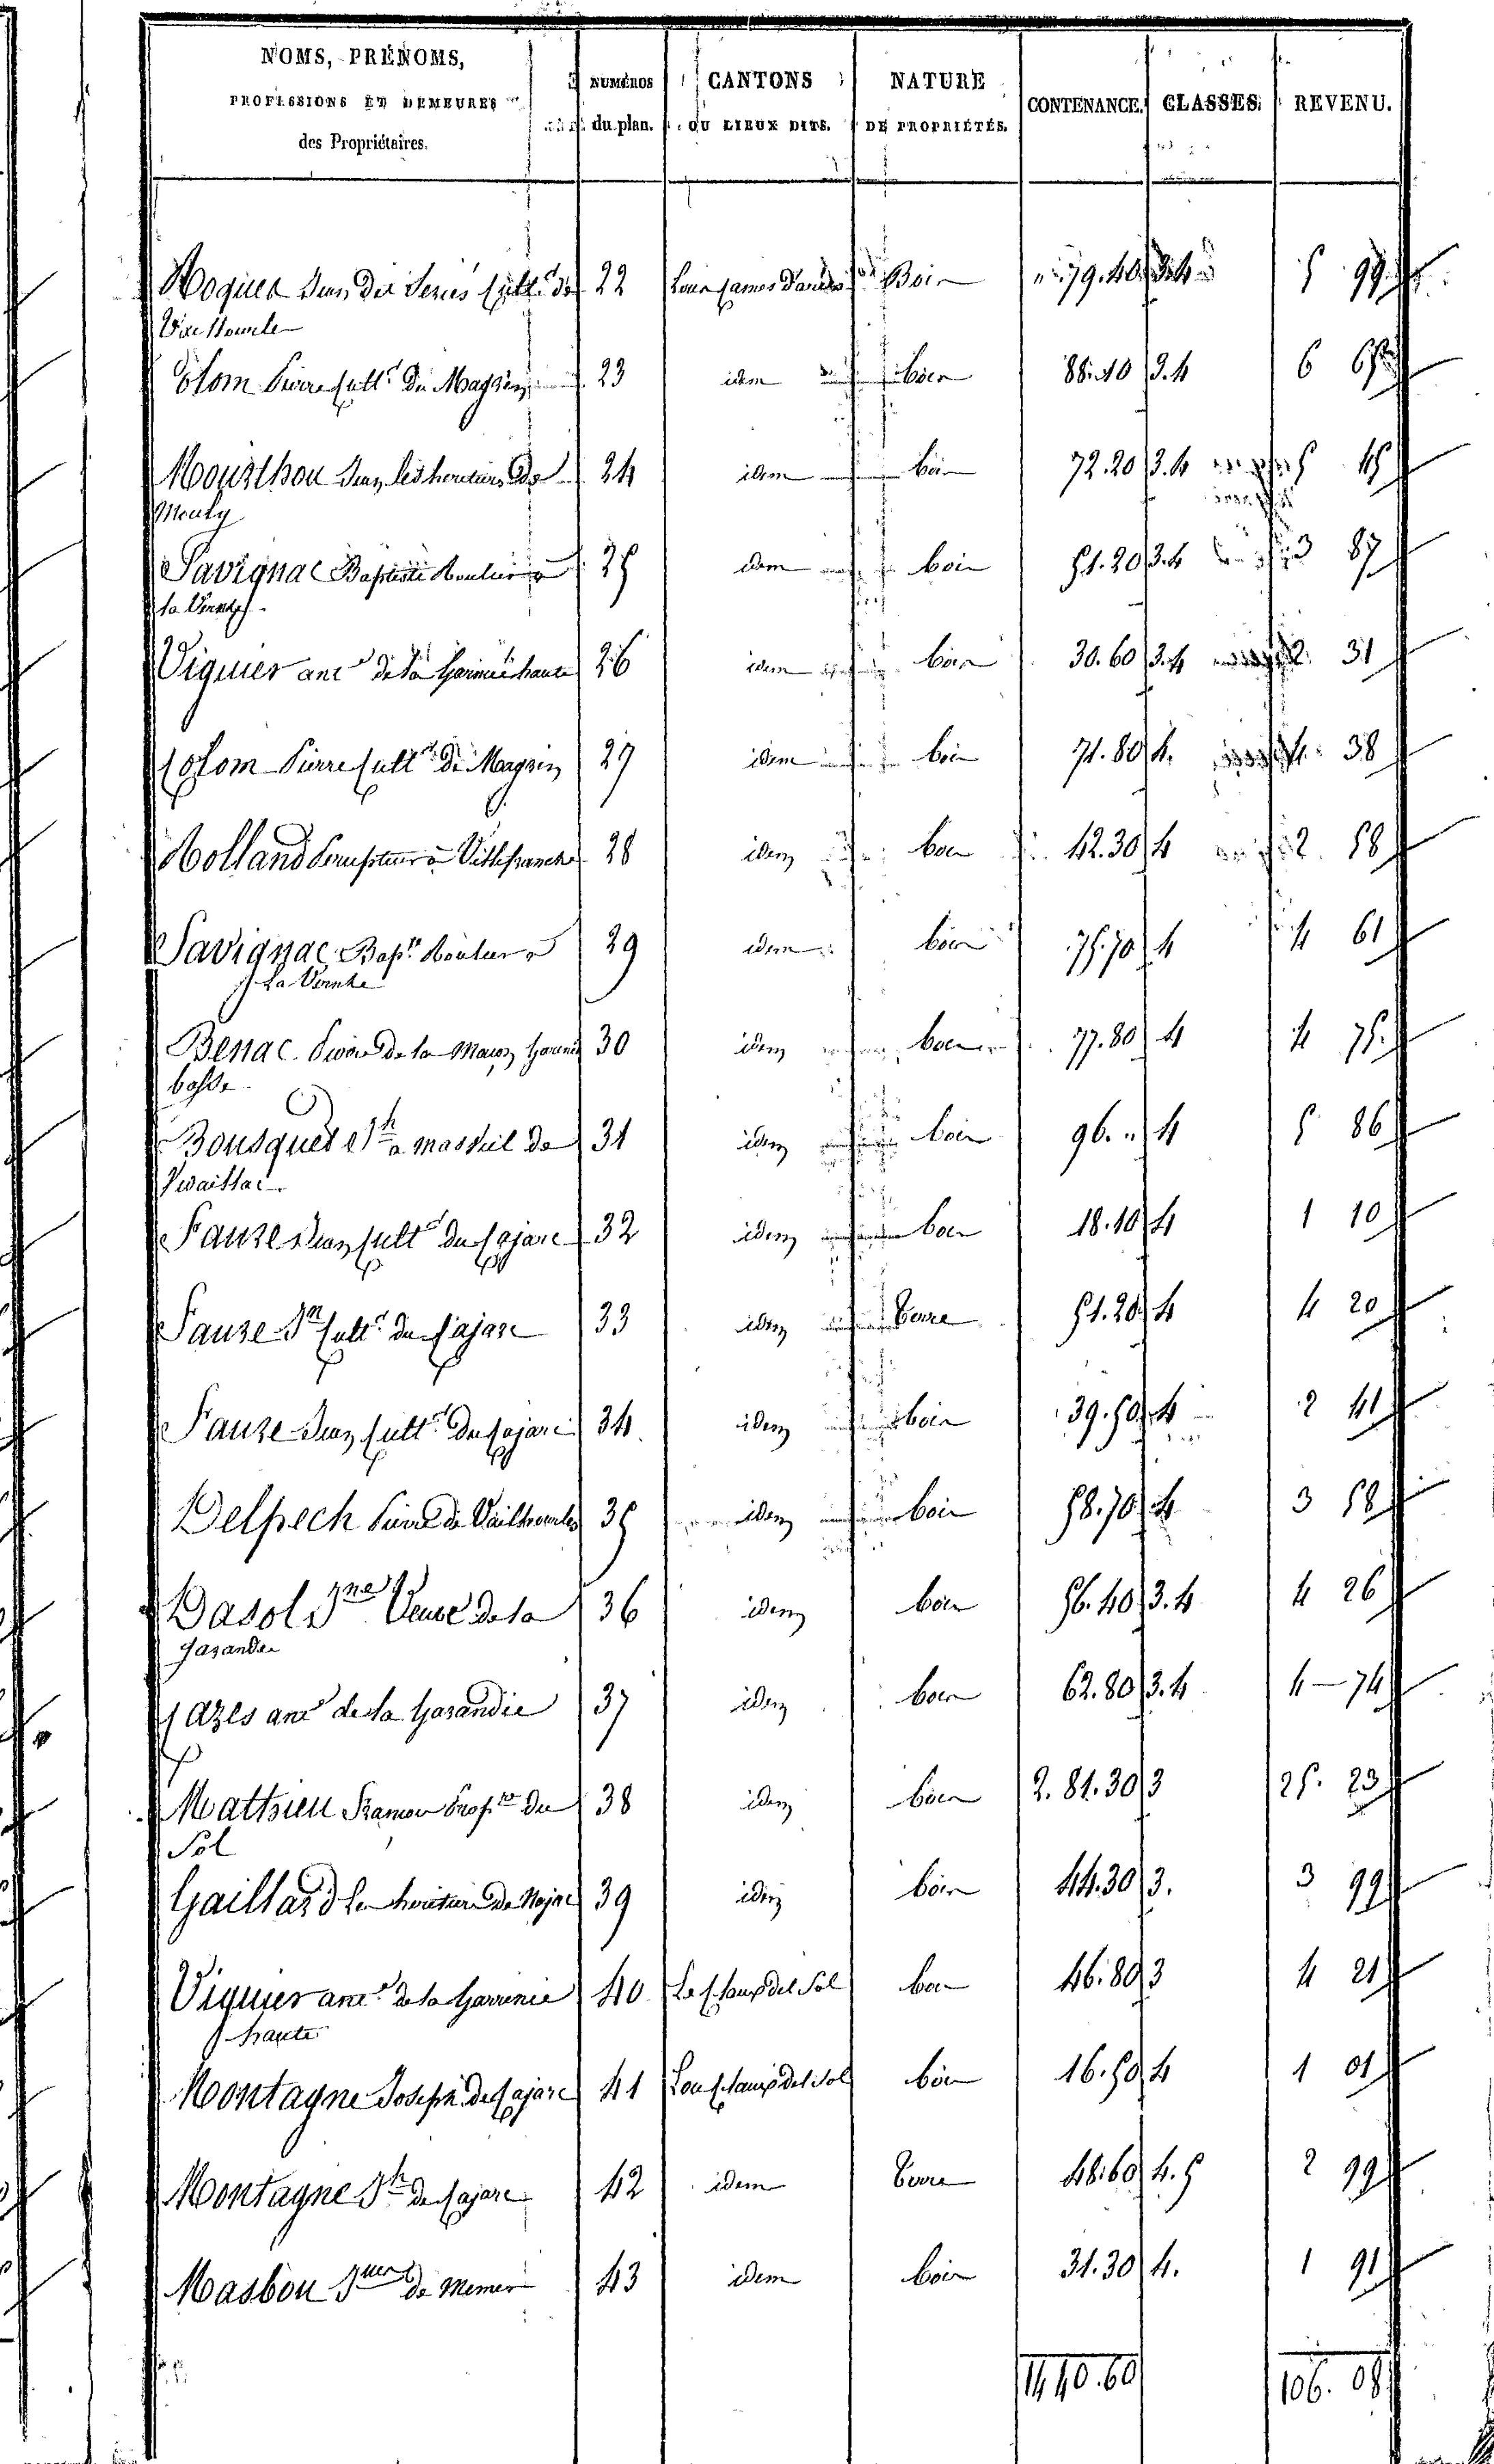 NOMS, PRÉNOMS, PROFESSIONS ET DEMEURES des Propriétaires. NUMÉROS du plan. CANTONS OU LIEUX DITS. NATURE DE PROPRIÉTÉS. CONTENANCE. CLASSES. REVENU.
22 Bois 79.40 3.4 5 99
Colom Pierre cultr. du Magzin 23 idem bois 88.40 3.4 6 67
Mouzthou Jean les heritiers de 24 idem bois 72.20 3.4 5 45
Mouly
Savignac Baptiste Roulier a 25 idem bois 51.20 3.4 3 87
la Vernhe
Viguier ane de la Garinie haute 26 idem bois 30.60 3.4 2. 31
Colom Pierre cultr. du Magzin 27 idem bois 71.80 4. 4. 38
Rolland Percepteur a Villefranche 28 idem bois 42.30 4 2. 58
Savignac Bapte. Roulier a 29 idem bois 75.70 4 4 61
La Vernhe
Benac Pierre de la Maison Garinie 30 idem bois 77.80 4 4 75
basse
Bousquet Jh a massuil de 31 idem bois 96. " 4 5 86
Vidaillac
Pauze Jean cultr du Cajarc 32 idem bois 18.10 4 1 10
Pauze Jn cultr. du Cajarc 33 idem terre 51.20 4 4 20
Pauze Jean cultr. du Cajarc 34 idem bois 39.50 4 2 41
Delpech Pierre de 35 idem bois 58.70 4 3 58
Dasol Jne Veuve de la 36 idem bois 56.40 3.4 4 26
Gazandie
Cazes ane de la Gazandie 37 idem bois 62.80 3.4 4 — 74
Mathieu Ramon Propre du 38 idem bois 2. 81.30 3 25. 23
Sol
Gaillard les heritiers de Najac 39 idem bois 44.30 3. 3 99
Viguier ane. de la Garrinie 40 Le Claux del Sol bois 46.80 3 4 21
haute
Montagne Joseph de Cajarc 41 Lou Claux del Sol bois 16.50 4 1 01
Montagne Jh de Cajarc 42 idem terre 48.60 4.5 2 99
Masbou de Memer 43 idem bois 31.30 4. 1 91
14 40.60 106. 08